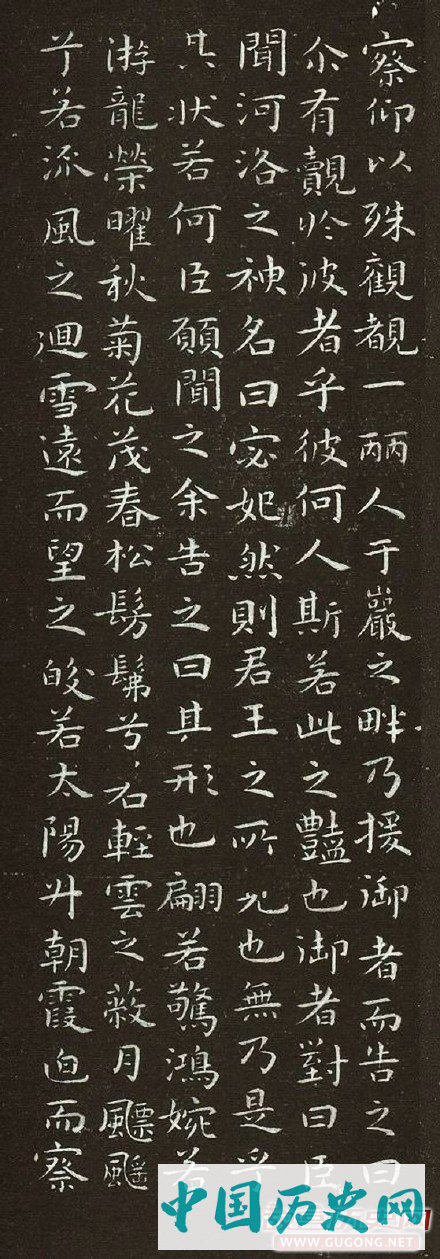 察仰以殊觀覩一麗人于巖之畔乃援御者而告之曰
尒有覿於彼者乎彼何人斯若此之豔也御者對曰臣
聞河洛之神名曰宓妃然則君王之所見也無乃是乎
其狀若何臣願聞之余告之曰其形也翩若驚鴻婉若
游龍榮曜秋菊花茂春松髣髴兮若輕雲之蔽月飄颻
兮若流風之迴雪遠而望之皎若太陽升朝霞迫而察
中国历史网
WWW.GUGONG.NET